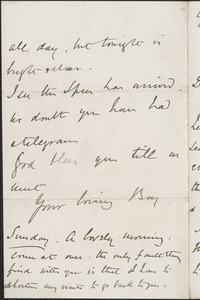 all day, but tonight is
bright & clear.
I see the Spee has arrived.
no doubt you have had
a telegram
God bless you till we
meet
Your loving Boy
Sunday. A lovely morning:
come at once: the only fault they
find with you is that I have to
shorten my visits to go back to you.